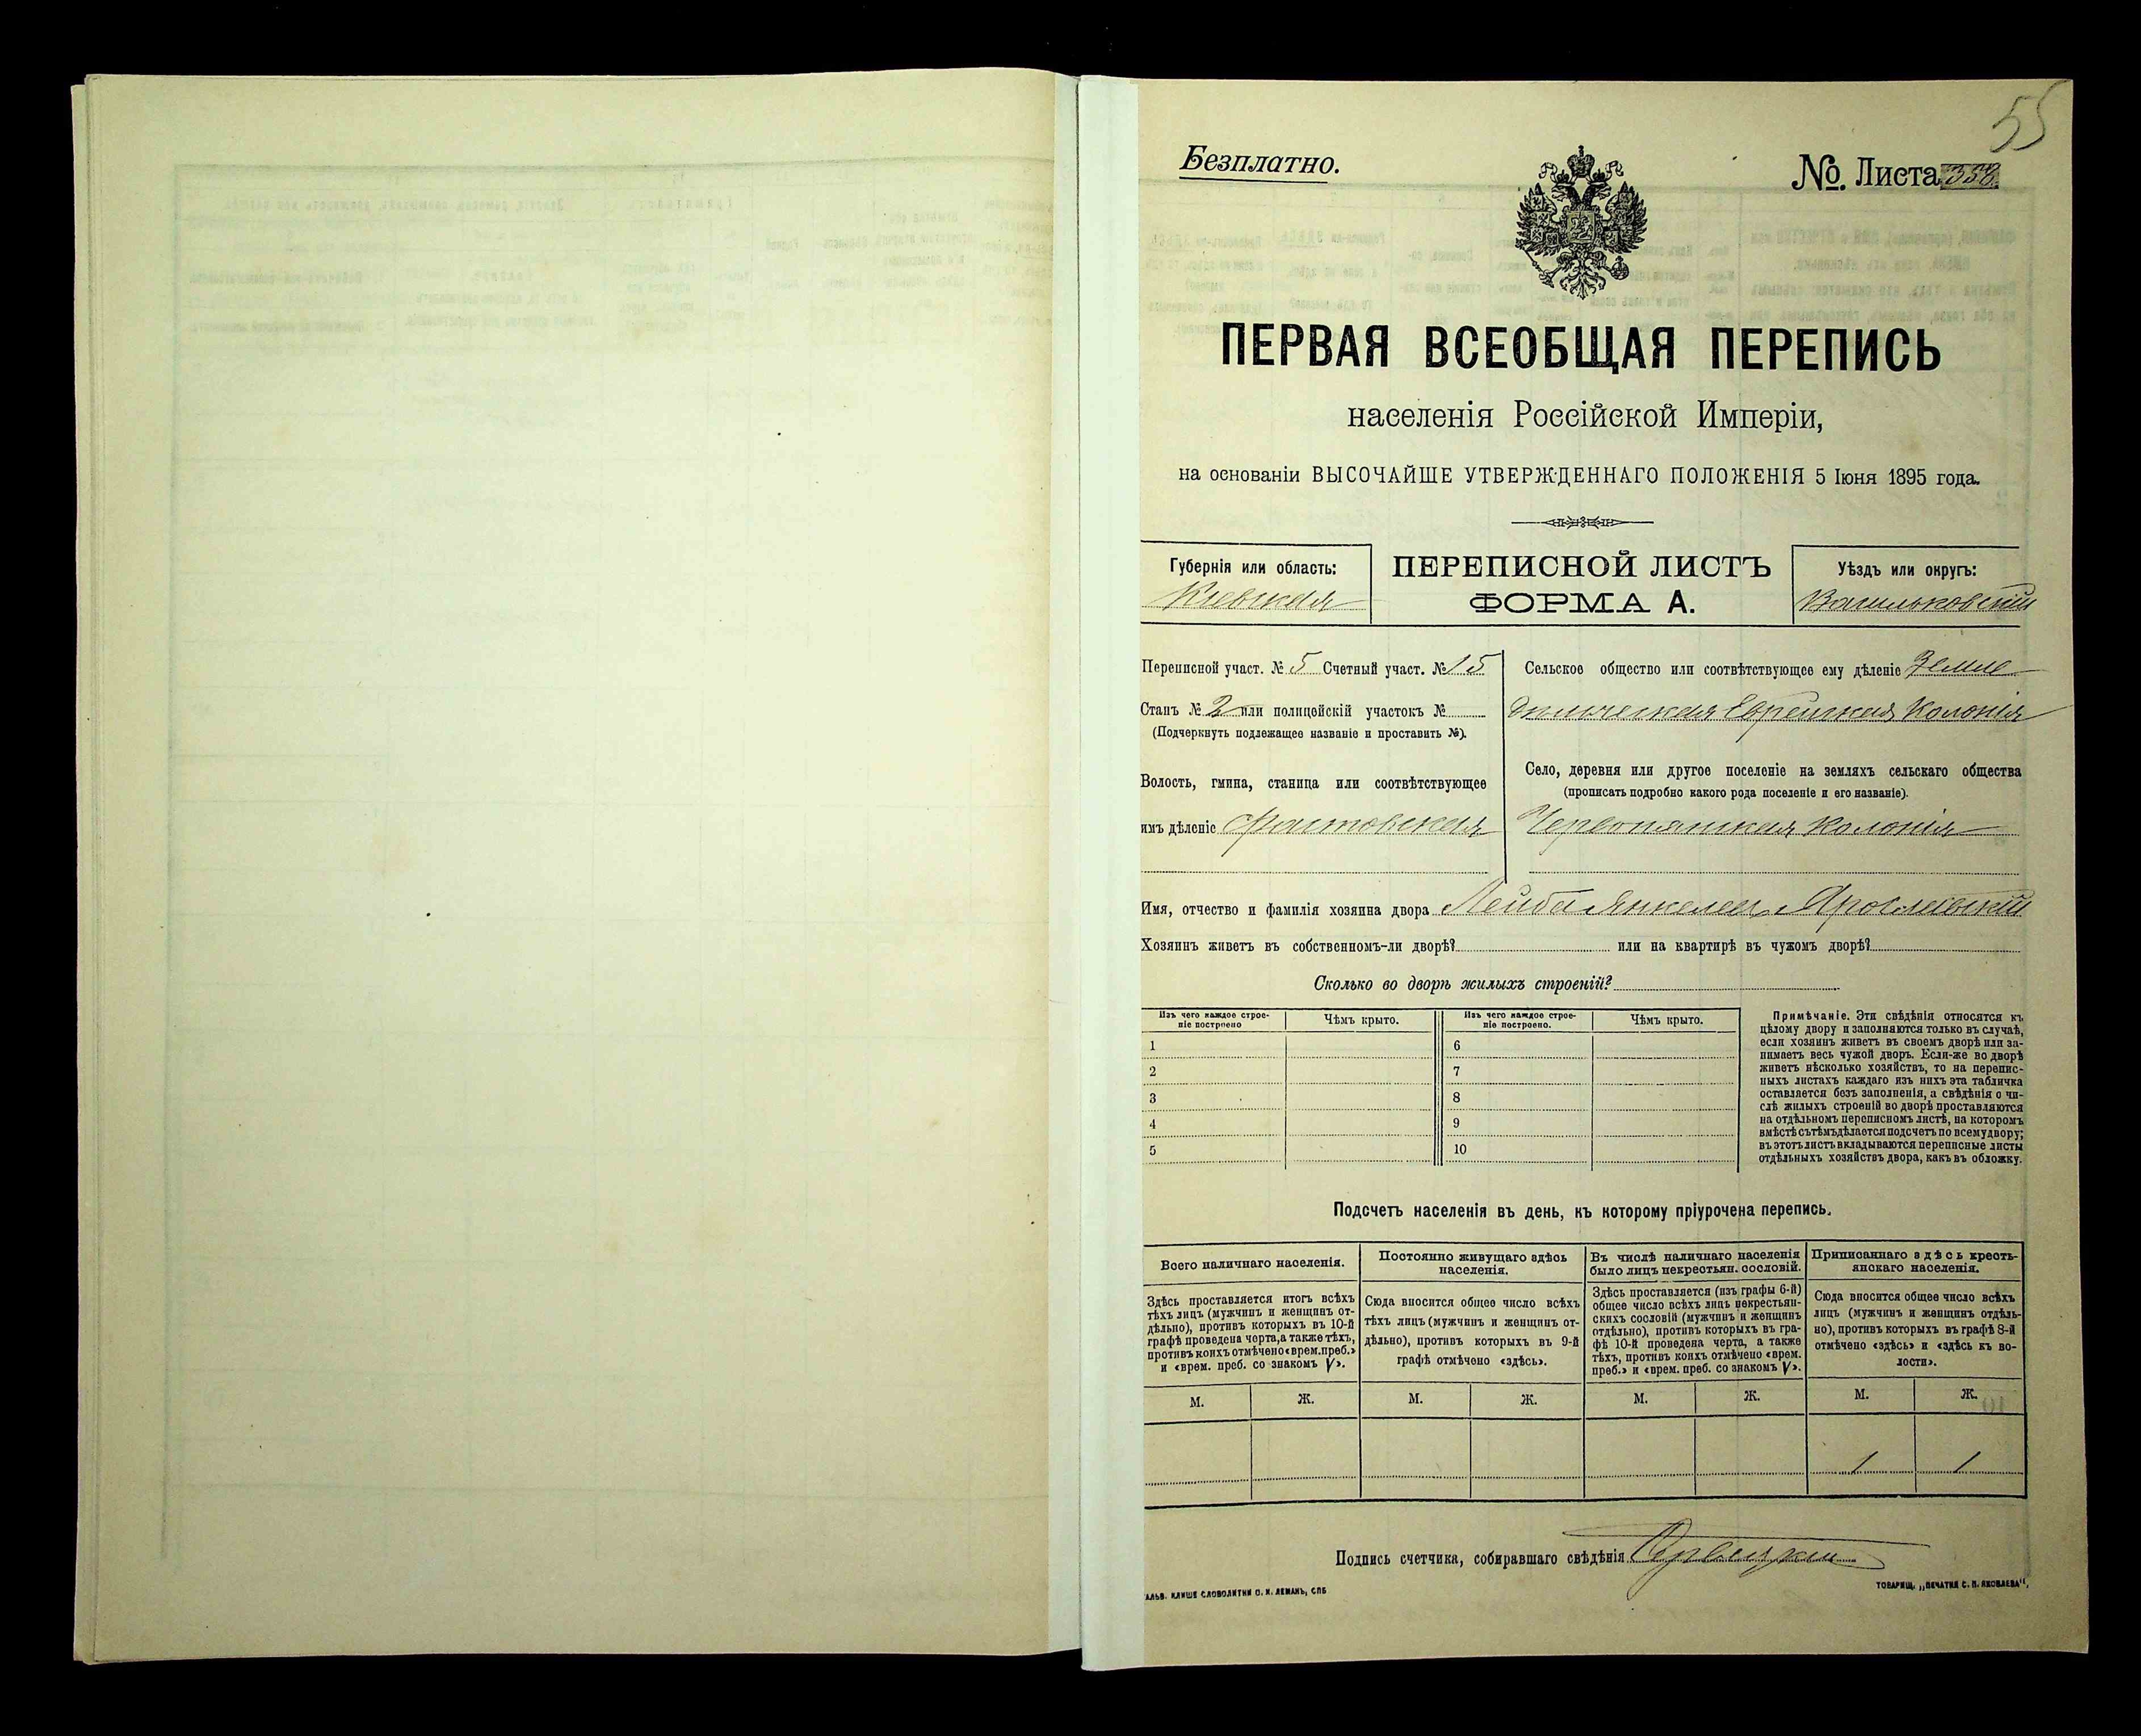 55
Безплатно.
№. Листа 356.
ПЕРВАЯ ВСЕОБЩАЯ ПЕРЕПИСЬ
населенія Россійской Имперіи,
на основаніи ВЫСОЧАЙШЕ УТВЕРЖДЕННАГО ПОЛОЖЕНІЯ 5 Іюня 1895 года.
Губернія или область:
Кіевская
ПЕРЕПИСНОЙ ЛИСТЪ
ФОРМА А.
Уѣздъ или округъ:
Васильковскій
Переписной участ. № 5 Счетный участ. № 15
Станъ № 2 или полицейскій участокъ №
(Подчеркнуть подлежащее названіе и проставить №).
Волость, гмина, станица или соотвѣтствующее
имъ дѣленіе Фастовская
Сельское общество или соотвѣтствующее ему дѣленіе Земле
дѣльческая Еврейская Колонія
Село, деревня или другое поселеніе на земляхъ сельскаго общества
(прописать подробно какого рода поселеніе и его названіе).
Червонянская колонія
Имя, отчество и фамилія хозяина двора Лейба Янкелев Ярославскій
Хозяинъ живетъ въ собственномъ-ли дворѣ? или на квартирѣ въ чужомъ дворѣ?
Сколько во дворѣ жилыхъ строеній?
Изъ чего каждое строе-
ніе построено
Чѣмъ крыто.
Изъ чего каждое строе-
ніе построено.
Чѣмъ крыто.
1 6
2 7
3 8
4 9
5 10
Примѣчаніе. Эти свѣдѣнія относятся къ
цѣлому двору и заполняются только въ случаѣ,
если хозяинъ живетъ въ своемъ дворѣ или за-
нимаетъ весь чужой дворъ. Если-же во дворѣ
живетъ нѣсколько хозяйствъ, то на перепис-
ныхъ листахъ каждаго изъ нихъ эта табличка
оставляется безъ заполненія, а свѣдѣнія о чи-
слѣ жилыхъ строеній во дворѣ проставляются
на отдѣльномъ переписномъ листѣ, на которомъ
вмѣстѣ съ тѣмъ дѣлается подсчетъ по всему двору;
въ этотъ листъ вкладываются переписные листы
отдѣльныхъ хозяйствъ двора, какъ въ обложку.
Подсчетъ населенія въ день, къ которому пріурочена перепись.
Всего наличнаго населенія.
Здѣсь проставляется итогъ всѣхъ
тѣхъ лицъ (мужчинъ и женщинъ от-
дѣльно), противъ которыхъ въ 10-й
графѣ проведена черта, а также тѣхъ,
противъ коихъ отмѣчено «врем. преб.»
и «врем. преб. со знакомъ V».
Постоянно живущаго здѣсь
населенія.
Сюда вносится общее число всѣхъ
тѣхъ лицъ (мужчинъ и женщинъ от-
дѣльно), противъ которыхъ въ 9-й
графѣ отмѣчено «здѣсь».
Въ числѣ наличнаго населенія
было лицъ некрестьян. сословій.
Здѣсь проставляется (изъ графы 6-й)
общее число всѣхъ лицъ некрестьян-
скихъ сословій (мужчинъ и женщинъ
отдѣльно), противъ которыхъ въ гра-
фѣ 10-й проведена черта, а также
тѣхъ, противъ коихъ отмѣчено «врем.
преб.» и «врем. преб. со знакомъ V».
Приписаннаго здѣсь кресть-
янскаго населенія.
Сюда вносится общее число всѣхъ
лицъ (мужчинъ и женщинъ отдѣль-
но), противъ которыхъ въ графѣ 8-й
отмѣчено «здѣсь» и «здѣсь къ во-
лости».
М. Ж. М. Ж. М. Ж. М. Ж.
1 1
Подпись счетчика, собиравшаго свѣдѣнія
ГАЛЬВ. КЛИШЕ СЛОВОЛИТНИ О. И. ЛЕМАНЪ, СПБ
ТОВАРИЩ. „ПЕЧАТНЯ С. П. ЯКОВЛЕВА“.